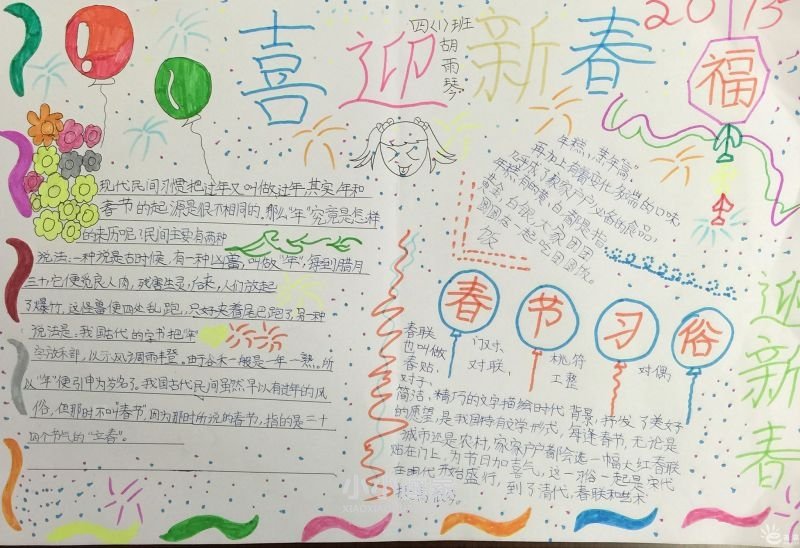 2015
喜迎新春
四(1)班
胡雨琴
福
现代民间习惯把过年又叫做过年,其实,年和
春节的起源是很不相同的。那么"年"究竟是怎样
的来历呢?民间主要有两种
说法:一种说是古时候,有一种凶兽,叫做"年",每到腊月
三十,它便觅食人肉,残害生灵,后来,人们放起
了爆竹,这怪兽便四处乱跑,只好夹着尾巴跑了,另一种
说法是:我国古代的字书把"年"
字放禾部,以示风调雨丰登。由于谷禾一般是一年一熟。所
以"年"便引申为岁名了。我国古代民间虽然早以有过年的风
俗,但那时不叫"春节",因为那时所说的春节,指的是二十
四个节气的"立春"。
年糕,
再加上有着变化多端的口味
年糕有
白银
大家团团
圆圆在一起吃团圆饭。
饭
春节习俗
春联
也叫做
春贴、
门对、
对联、
桃符
工整
对偶
对子、
简洁、精巧的文字描绘时代背景,抒发了美好
的愿望,是我国特有文学形式,每逢春节,无论是
城市还是农村,家家户户都会选一幅大红春联
贴在门上,为节日加喜气,这一习俗一起是宋代
在明代开始盛行,到了清代,春联和艺术
迎新春